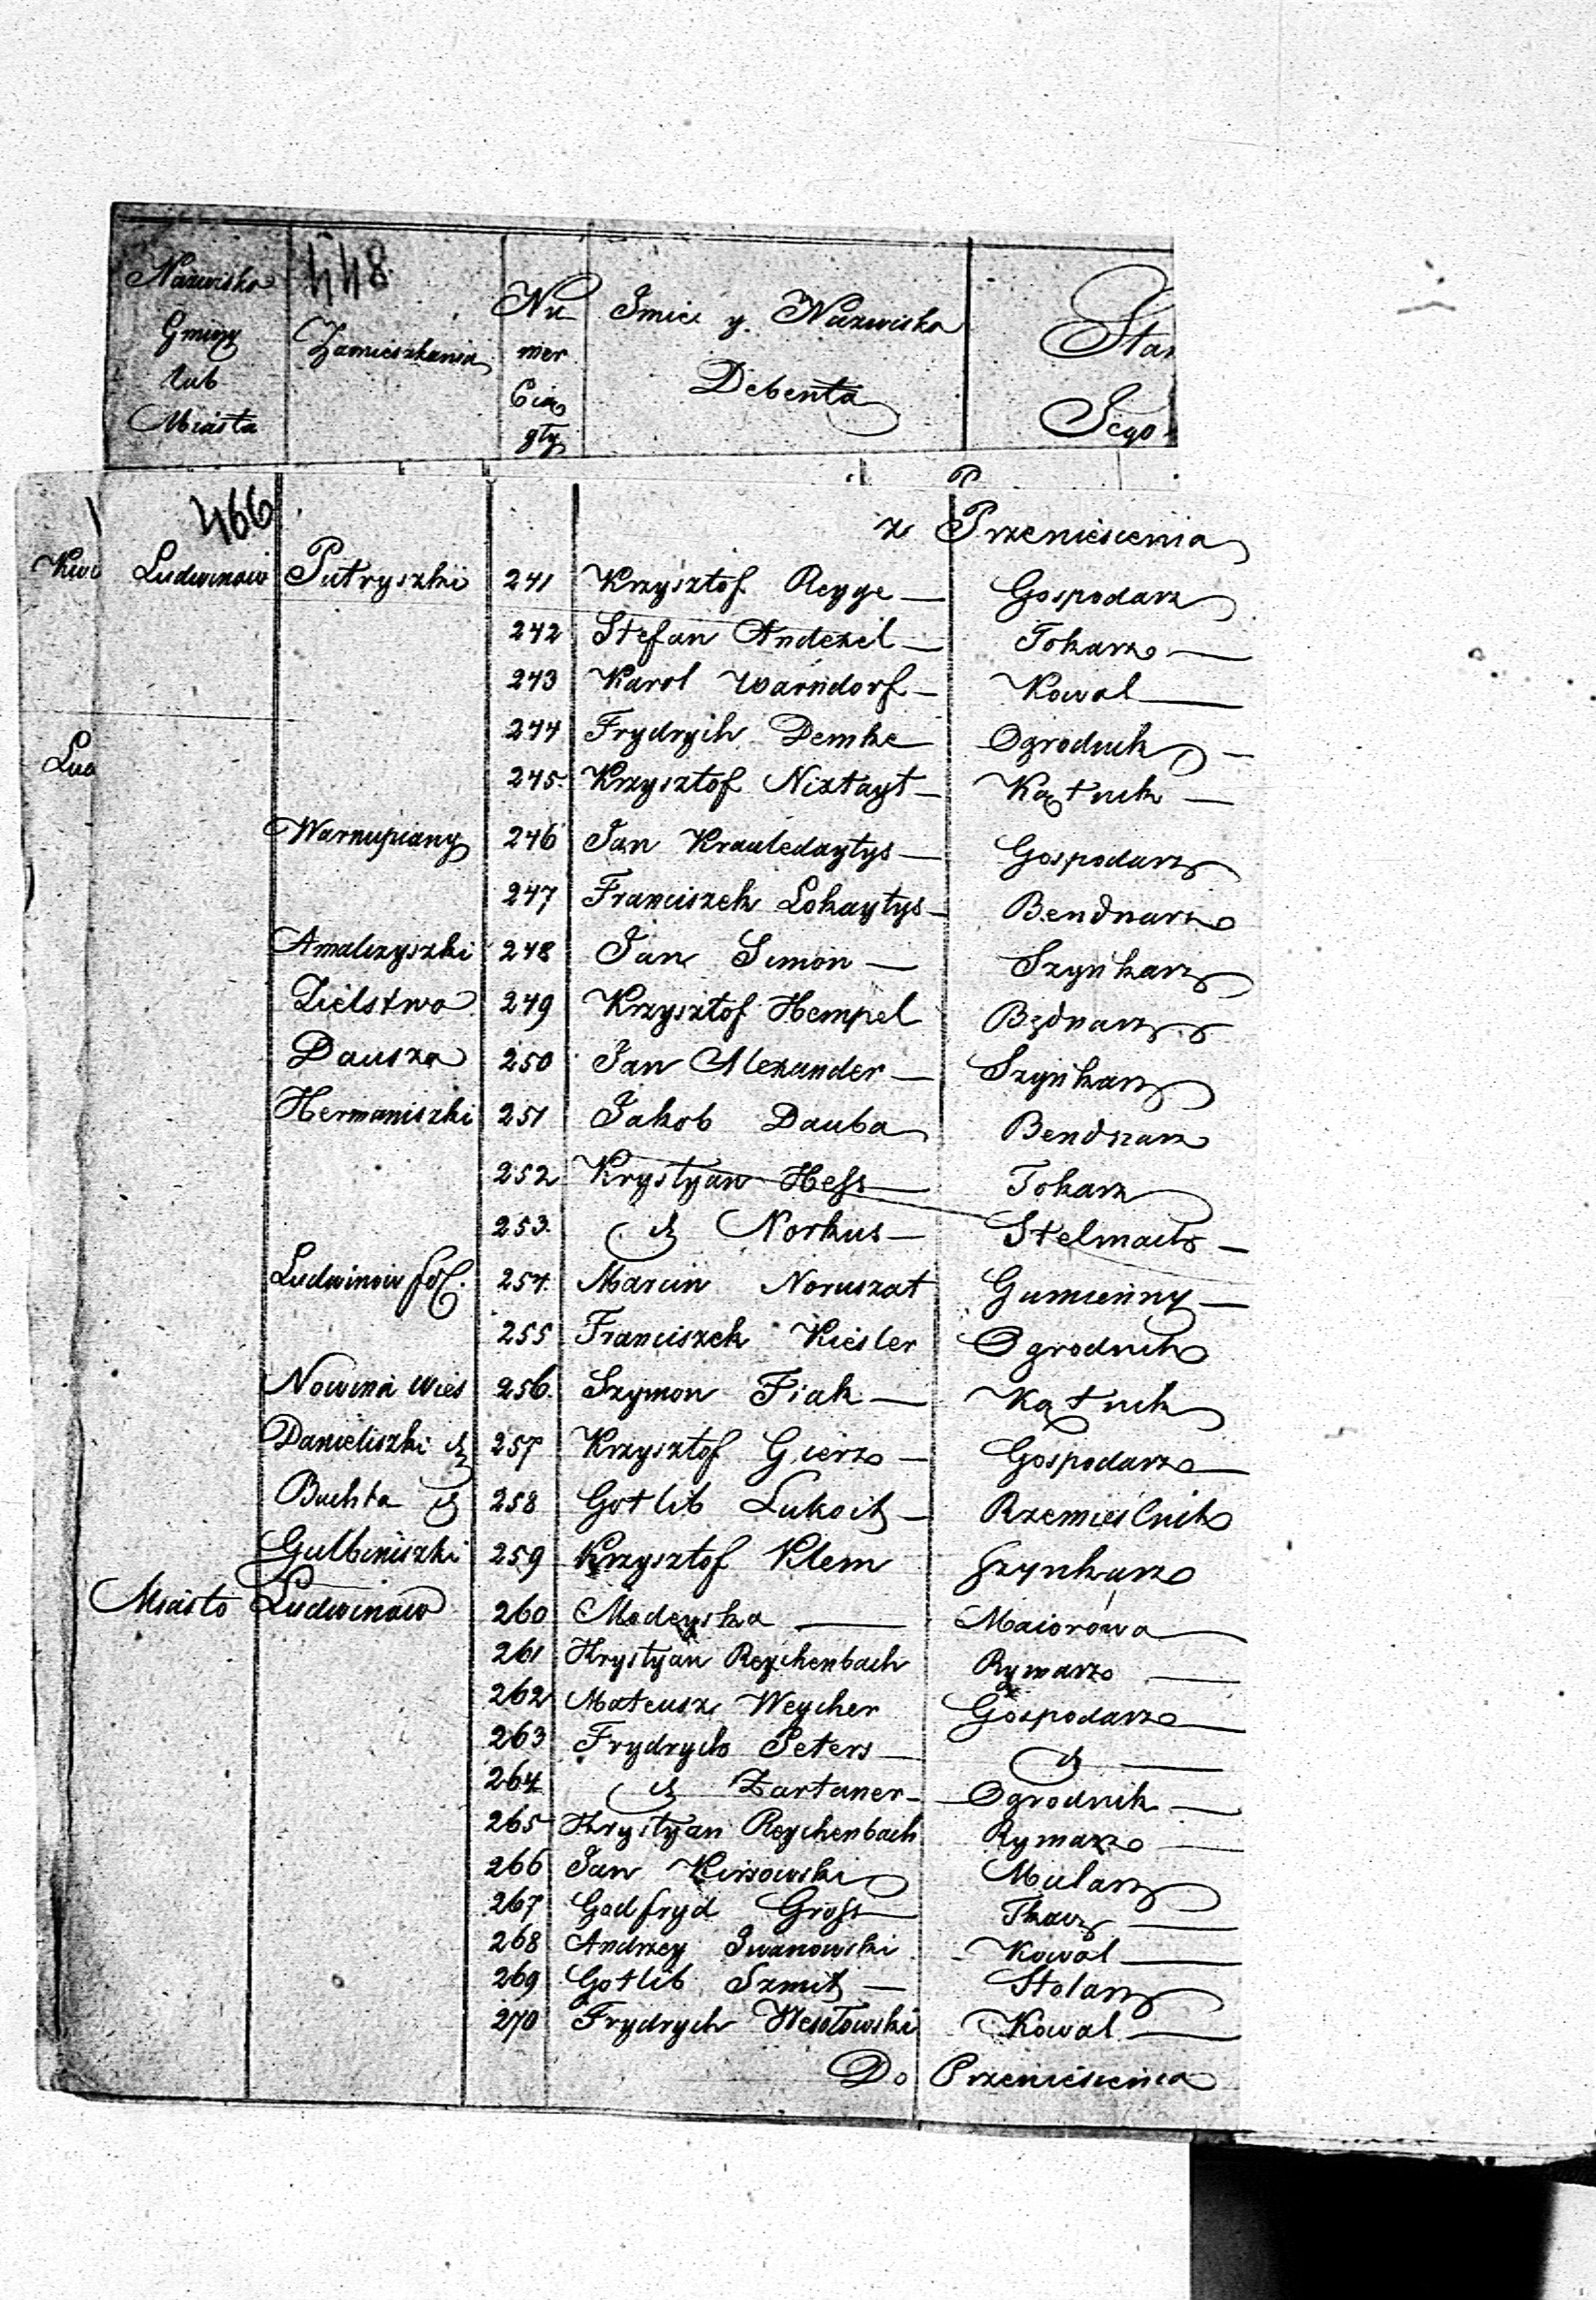 448.
Nazwiska Gminy lub Miasta | Zamieszkania | Nu mer Cią gły | Jmie y Nazwiska Debenta | Stan Jego
466
z Przeniesienia
Ludwinow Putryszki 241 Krzysztof Reyge — Gospodarz
242 Stefan Andexel — Tokarz —
243 Karol Warndorf — Kowal —
244 Frydrych Demke Ogrodnik —
245 Krzysztof Niktayt — Kątnik —
Warnupiany 246 Jan Krauledaytys — Gospodarz
247 Franciszek Lokaytys — Bendnarz
Amalczyszki 248 Jan Simon — Szynkarz
Zielstwo 249 Krzysztof Hempel Bednarz
Dausza 250 Jan Alexander — Szynkarz
Hermaniszki 251 Jakob Dauba Bendnarz
252 Krystyan Hess — Tokarz
253. dt Norkus — Stelmach —
Ludwinow fol. 254. Marcin Noruszat Gumienny —
255 Franciszek Kiesler Ogrodnik
Nowina Wies 256. Szymon Fiak — Kątnik
Danieliszki dt 257 Krzysztof Gierz — Gospodarz —
Buchta dt 258 Gotlib Lukoit — Rzemieslnik
Gulbiniszki 259 Krzysztof Klem Szynkarz
Miasto Ludwinow 260 Modeyska — Maiorowa —
261 Krystyan Reychenbach Rymarz —
262 Mateusz Weycher Gospodarz —
263 Frydrych Peters — dt —
264 dt Zartaner — Ogrodnik —
265 Krystyan Reychenbach Rymarz —
266 Jan Kirsowski Mularz
267 Godfryd Gross — Tkacz —
268 Andrzey Iwanowski Kowal —
269 Gotlib Szmit — Stolarz
270 Frydrych Wesołowski Kowal —
Do Przeniesienia